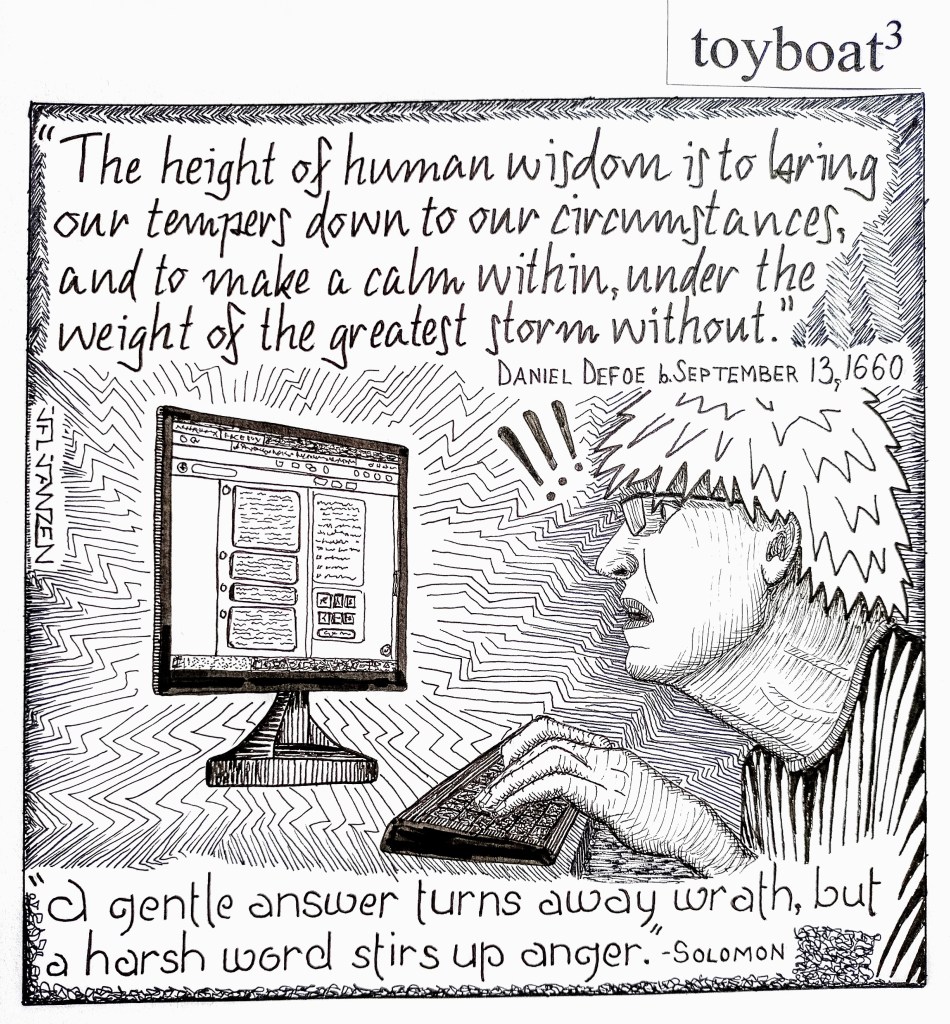 toyboat³
“The height of human wisdom is to bring
our tempers down to our circumstances,
and to make a calm within, under the
weight of the greatest storm without.”
DANIEL DEFOE b. SEPTEMBER 13, 1660
JFL JANZEN
“A gentle answer turns away wrath, but
a harsh word stirs up anger.” -SOLOMON